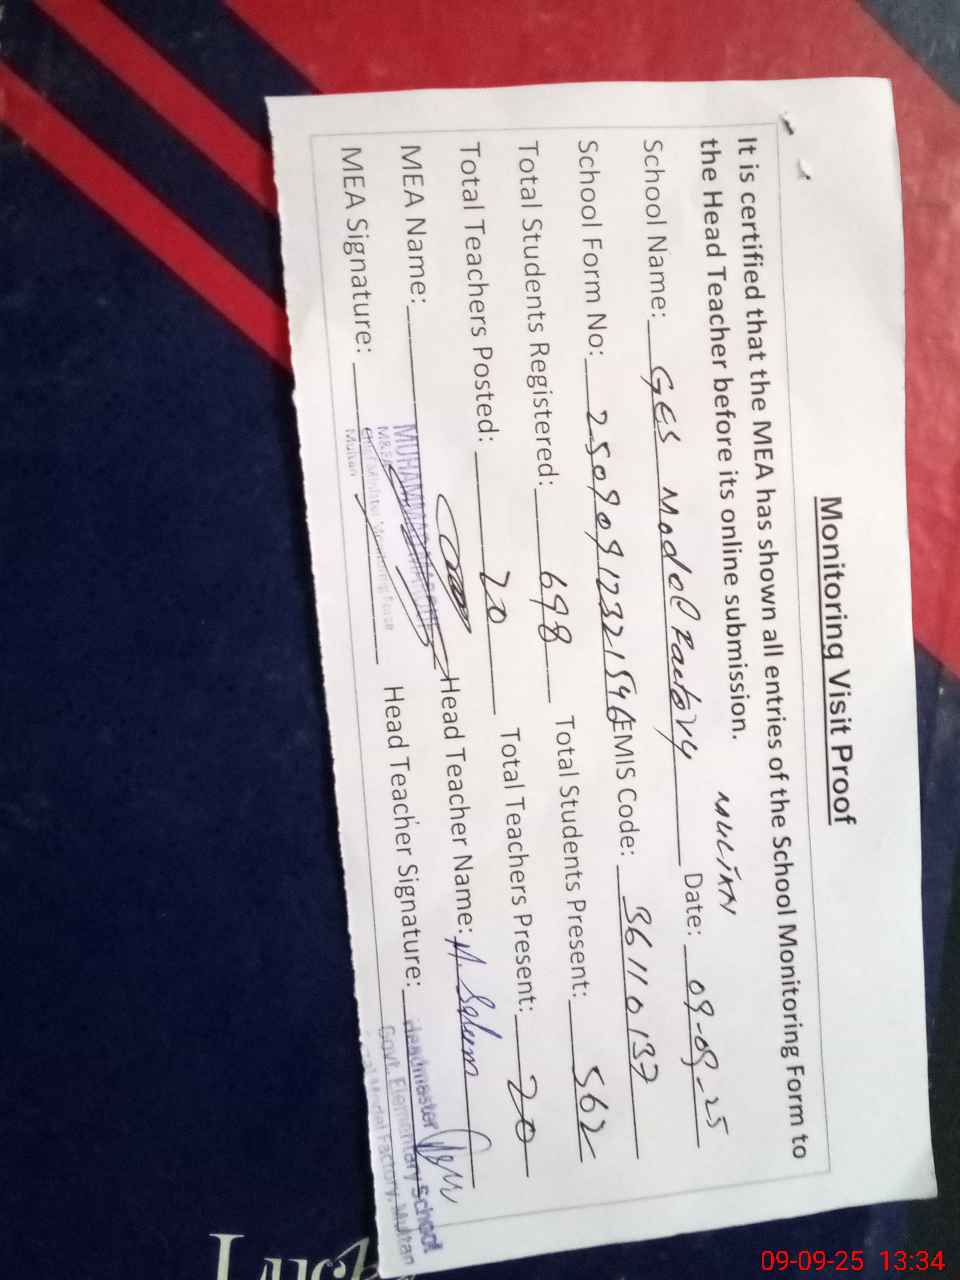 Monitoring Visit Proof
It is certified that the MEA has shown all entries of the School Monitoring Form to
the Head Teacher before its online submission.
MULTAN
School Name: GES Model Factory Date: 09-09-25
School Form No: 25090912321546 EMIS Code: 36110137
Total Students Registered: 698 Total Students Present: 562
Total Teachers Posted: 20 Total Teachers Present: 20
MEA Name: MUHAMMAD Head Teacher Name:
M&EA
MEA Signature: Chief Minister Monitoring Force Head Teacher Signature: Headmaster
Multan
Govt. Elementary School
Model Factory, Multan
09-09-25 13:34